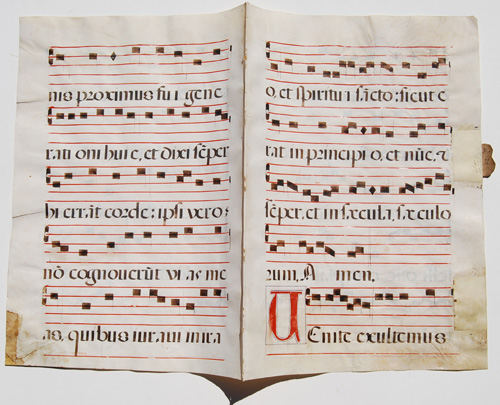 nis proximus fui gene
rati oni huic, et dixi sēper
hi errāt corde: ipsi vero
nō cognoverūt vi as me
as, quibus iuraui in ira
o, et spiritui sācto: sicut e
rat in principi o, et nūc, et
sēper, et in sæcula, sæ culo
rum, A men.
VEnite exultemus